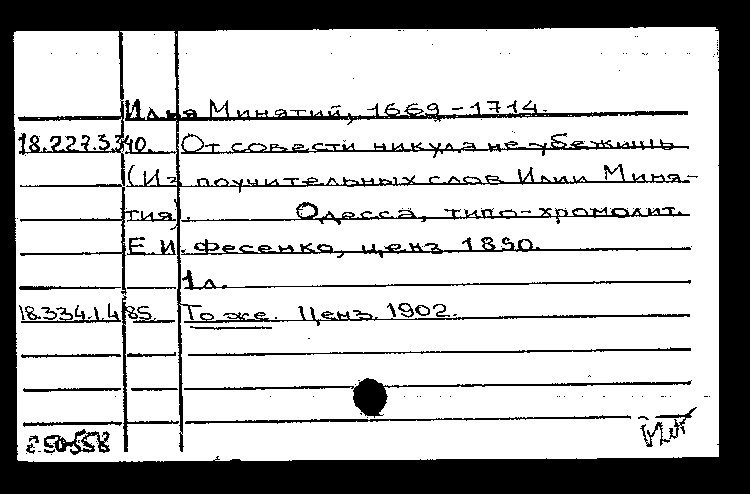 Илья Минятий, 1669-1714.
18.227.3.340. От совести никуда не убежишь
(Из поучительных слов Илии Миня-
тия). Одесса, типо-хромолит.
Е.И. Фесенко, ценз. 1890.
1 л.
18.334.1.485. То же. Ценз. 1902.